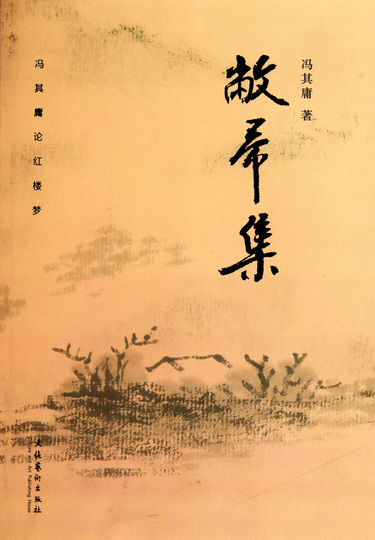 冯其庸 著
敝帚集
冯其庸论红楼梦
文化艺术出版社
Culture and Art Publishing House